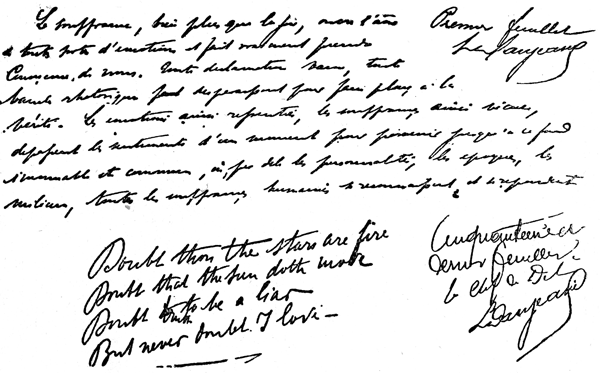 souffrance, plus que la
à toute sorte d'émotions et fait vraiment prendre
Conscience de nous. Toute déclamation vaine, tout
rhétorique pour faire place à la
vérité. Les émotions ainsi les souffrances ainsi vécues,
dépassent les sentiments d'un moment pour parvenir jusqu'à ce fond
immuable et commun, où, par delà les personnalités, les époques, les
milieux, toutes les souffrances humaines se reconnaissent, et se répondent
Premier feuillet
Doubt thou the stars are fire
Doubt that the sun doth move
Doubt truth to be a liar
But never doubt I love –
Cinquantième et
dernier feuillet
le